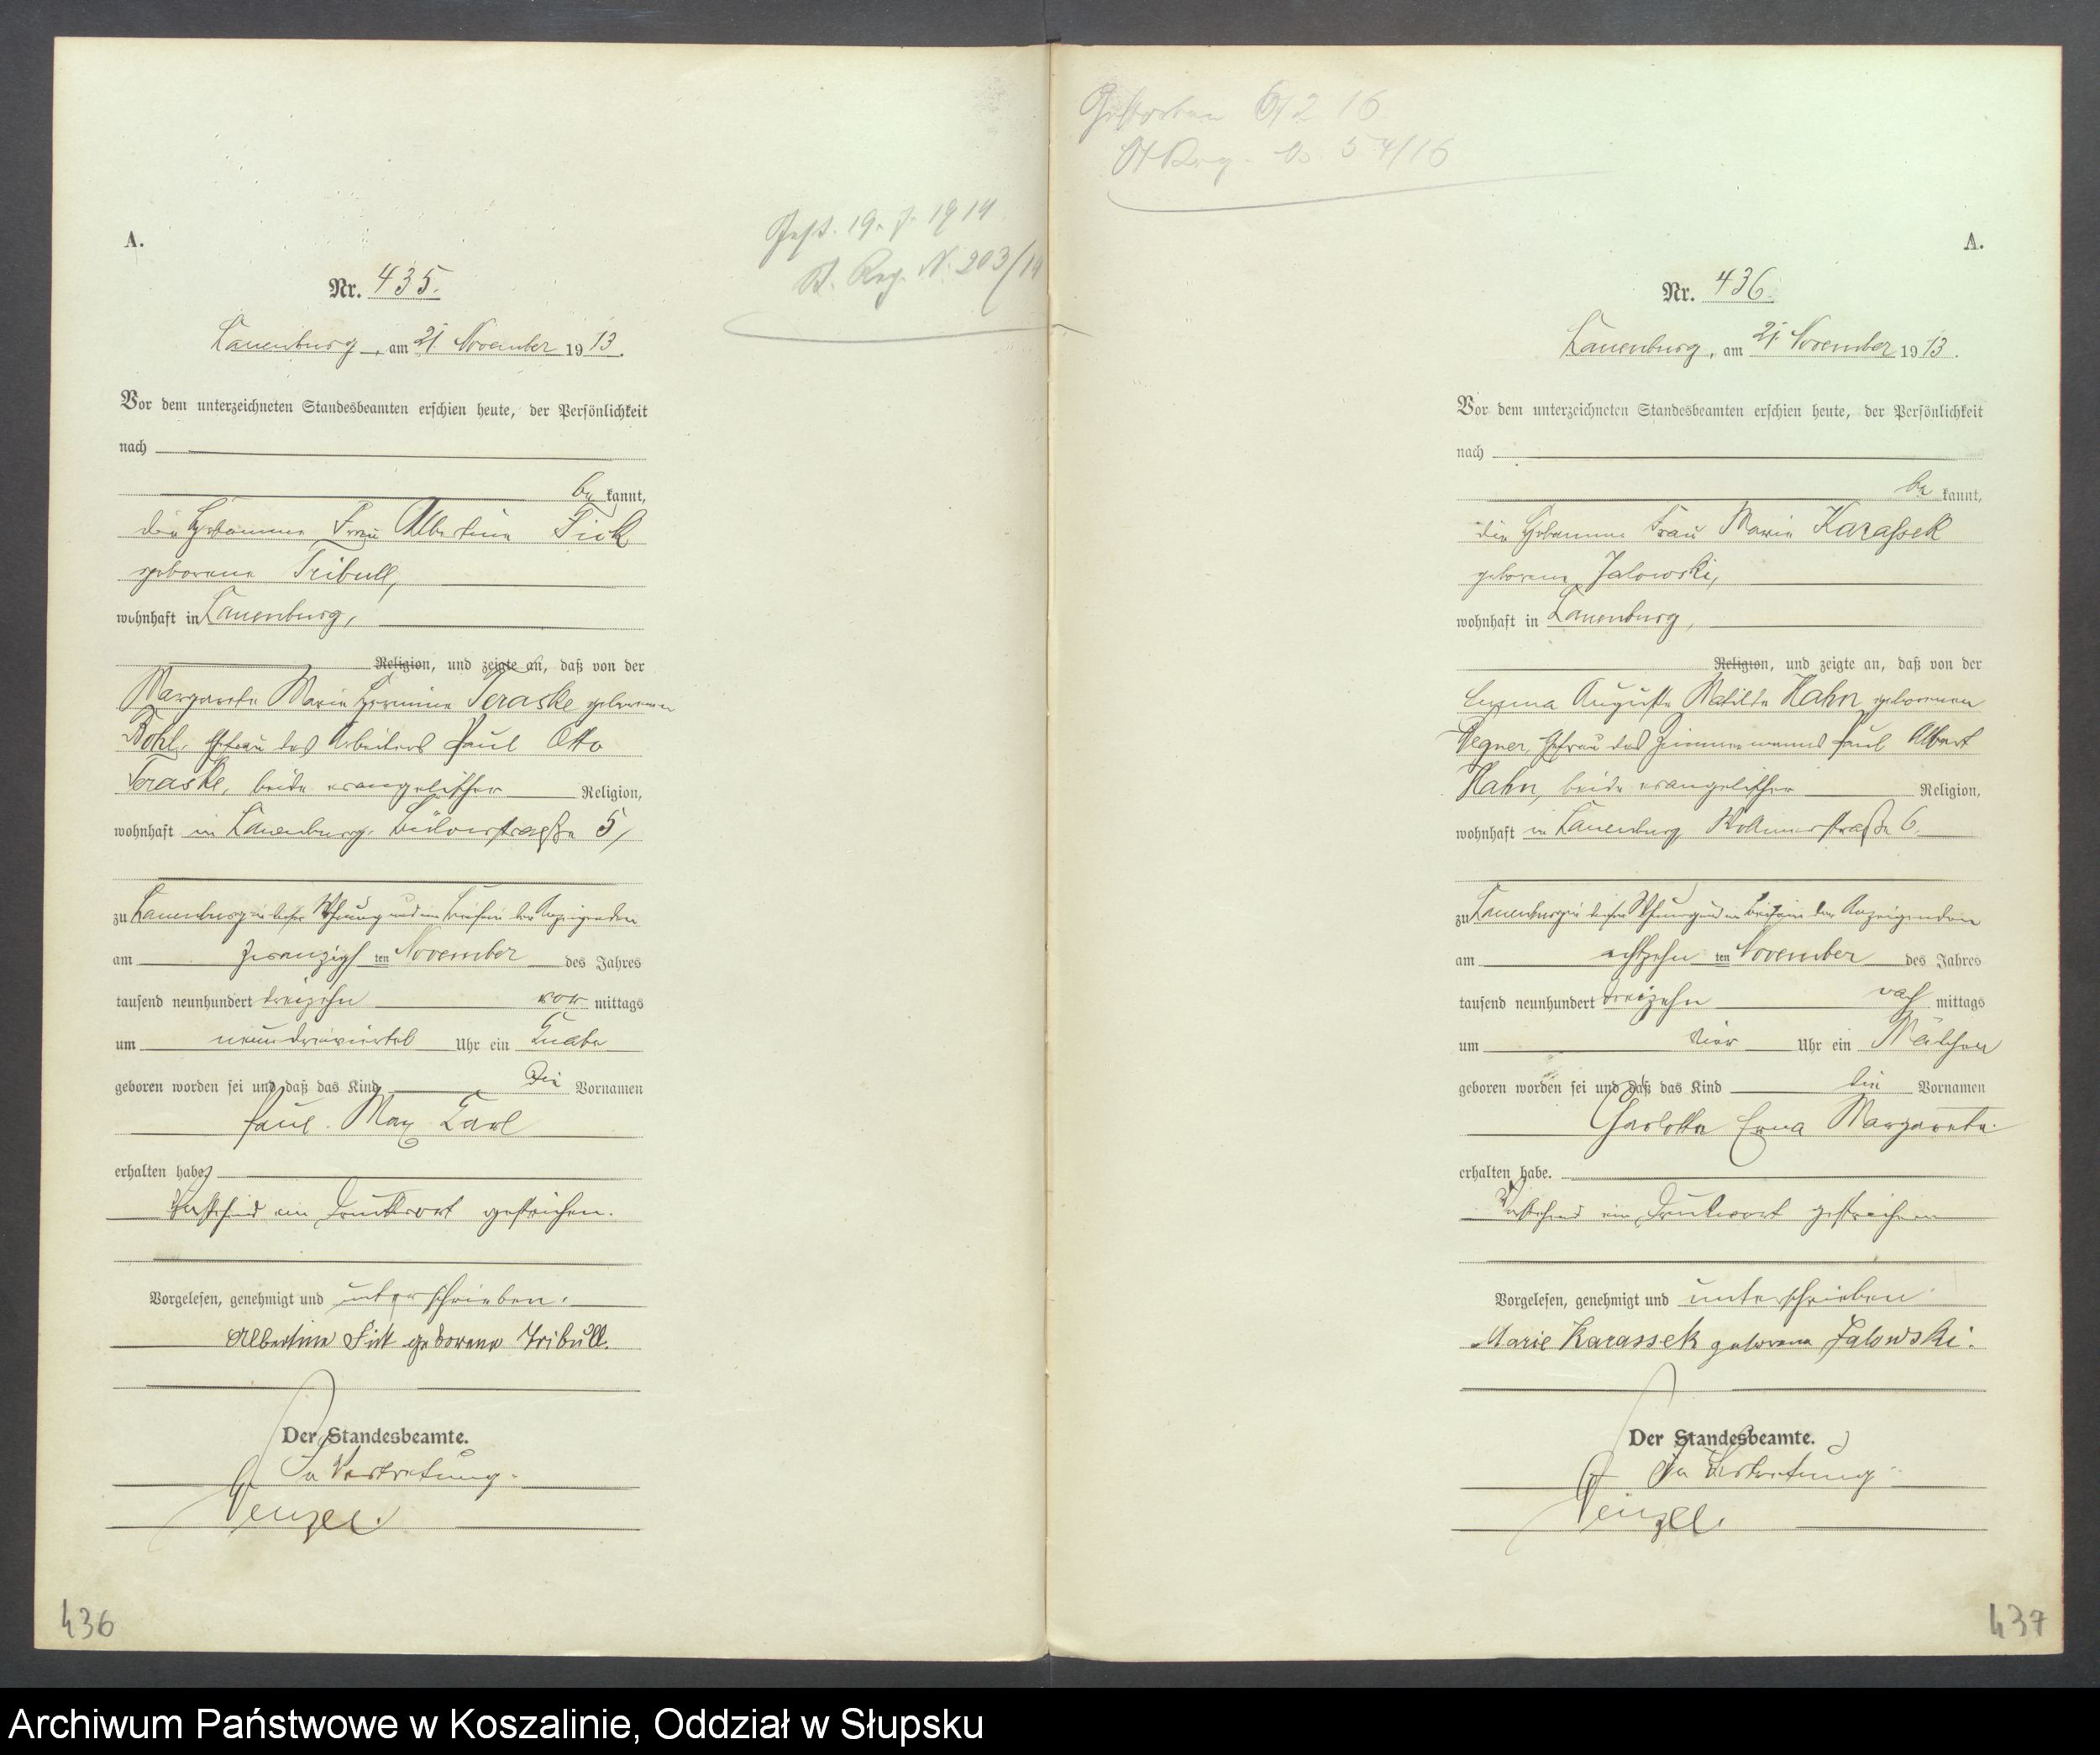 Gest. 19. 7. 1914
St. Reg. N. 203/14
A.
Nr. 435.
Lauenburg, am 21. November 1913.
Vor dem unterzeichneten Standesbeamten erschien heute, der Persönlichkeit
nach
be kannt,
die Hebamme Frau Albertine Fick
geborene Tribull,
wohnhaft in Lauenburg,
Religion, und zeigte an, daß von der
Margarete Marie Hermine Teraske geborenen
Bohl, Ehefrau des Arbeiters Paul Otto
Teraske, beide evangelischer Religion,
wohnhaft in Lauenburg, Bülowstraße 5,
zu Lauenburg in dieser Wohnung und im Beisein der Anzeigenden
am zwanzigsten November des Jahres
tausend neunhundert dreizehn vor mittags
um neundreiviertel Uhr ein Knabe
geboren worden sei und daß das Kind die Vornamen
Paul Max Karl
erhalten habe.
Vorstehend ein Druckwort gestrichen.
Vorgelesen, genehmigt und unterschrieben.
Albertine Fick geborene Tribull.
Der Standesbeamte.
In Vertretung.
Wenzel.
436
Gestorben 6/2 16
St Reg. No. 54/16
A.
Nr. 436.
Lauenburg, am 21. November 1913.
Vor dem unterzeichneten Standesbeamten erschien heute, der Persönlichkeit
nach
be kannt,
die Hebamme Frau Marie Karassek
geborene Jalowski,
wohnhaft in Lauenburg,
Religion, und zeigte an, daß von der
Auguste Matilde Hahn geborenen
Wegner, Ehefrau des Zimmermanns Paul Albert
Hahn, beide evangelischer Religion,
wohnhaft in Lauenburg, 6.
zu Lauenburg in dieser Wohnung und im Beisein der Anzeigenden
am achtzehnten November des Jahres
tausend neunhundert dreizehn nach mittags
um vier Uhr ein Mädchen
geboren worden sei und daß das Kind die Vornamen
Charlotte Erna Margarete
erhalten habe.
Vorstehend ein Druckwort gestrichen
Vorgelesen, genehmigt und unterschrieben
Marie Karassek geborene Jalowski.
Der Standesbeamte.
In Vertretung.
Wenzel.
437
Archiwum Państwowe w Koszalinie, Oddział w Słupsku